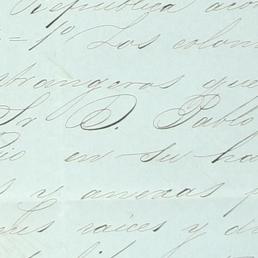 Republica aco
1º Los colon
trangeros que
Sr D. Pablo
en su ha
s y anexas
raices y d